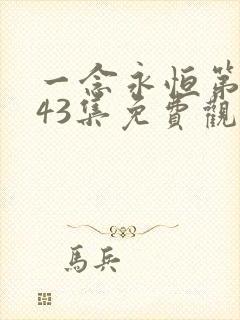 一念永恒第
43集免費觀
馬兵